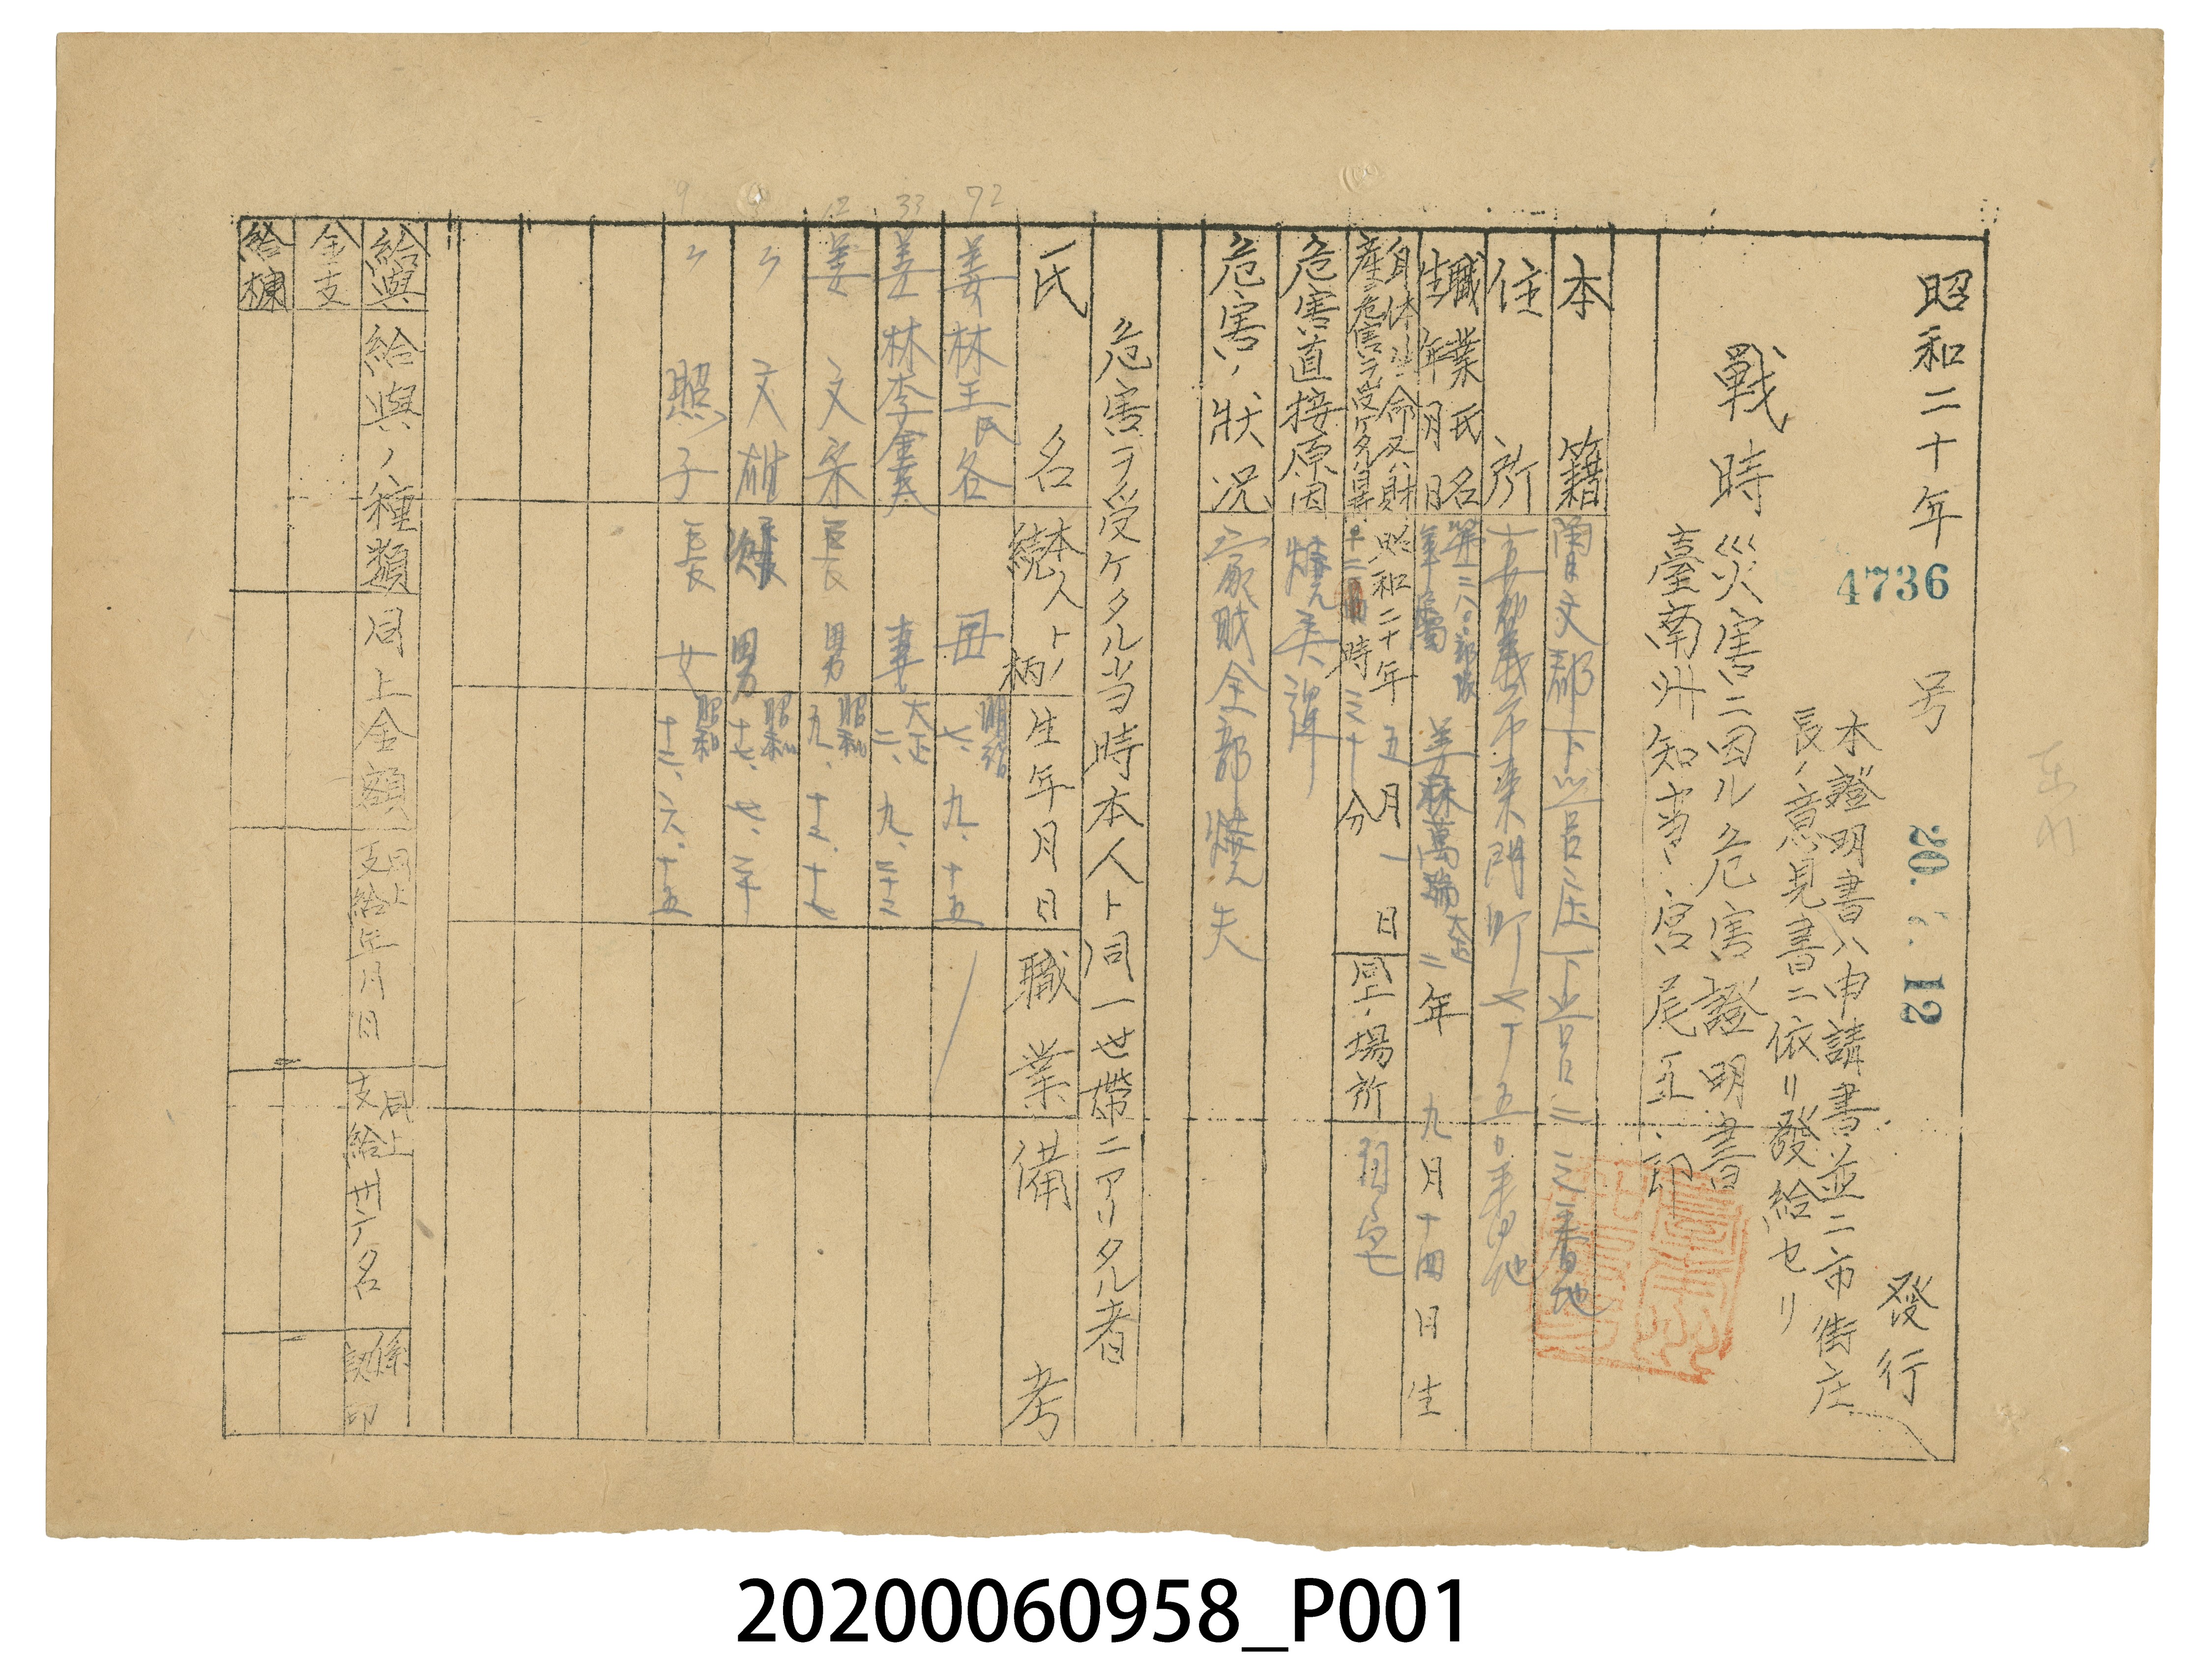 昭和二十年 4736 号 20. 7. 12 發行
本證明書ハ申請書並ニ市街庄
長ノ意見書ニ依リ發給セリ
戰時災害ニ因ル危害證明書
臺南州知事 宮尾五郎
本籍
番地
住所 嘉義市東門町
番地
職業氏名 姜林萬瑞
生年月日 大正二年九月十四日生
身体生命又ハ財
產ニ危害ヲ受ケタル日時 昭和二十年五月一日
時三十分
同上ノ場所 自宅
危害直接原因 燒夷彈
危害ノ狀況 家財全部燒失
危害ヲ受ケタル当時本人ト同一世帶ニアリタル者
氏名 本人トノ續柄 生年月日 職業 備考
72 姜林王氏各 母 明治七、九、十五
33 姜林李金 妻 大正二、九、二十三
12 姜文宋 長男 昭和九、十二、十七
〃 文雄 男 昭和十七、七、二十
9 〃 照子 長女 昭和十二、六、十五
給與 給與ノ種類 同上金額 同上支給年月日 同上支給廳名 係認印
金支
給棟
20200060958_P001